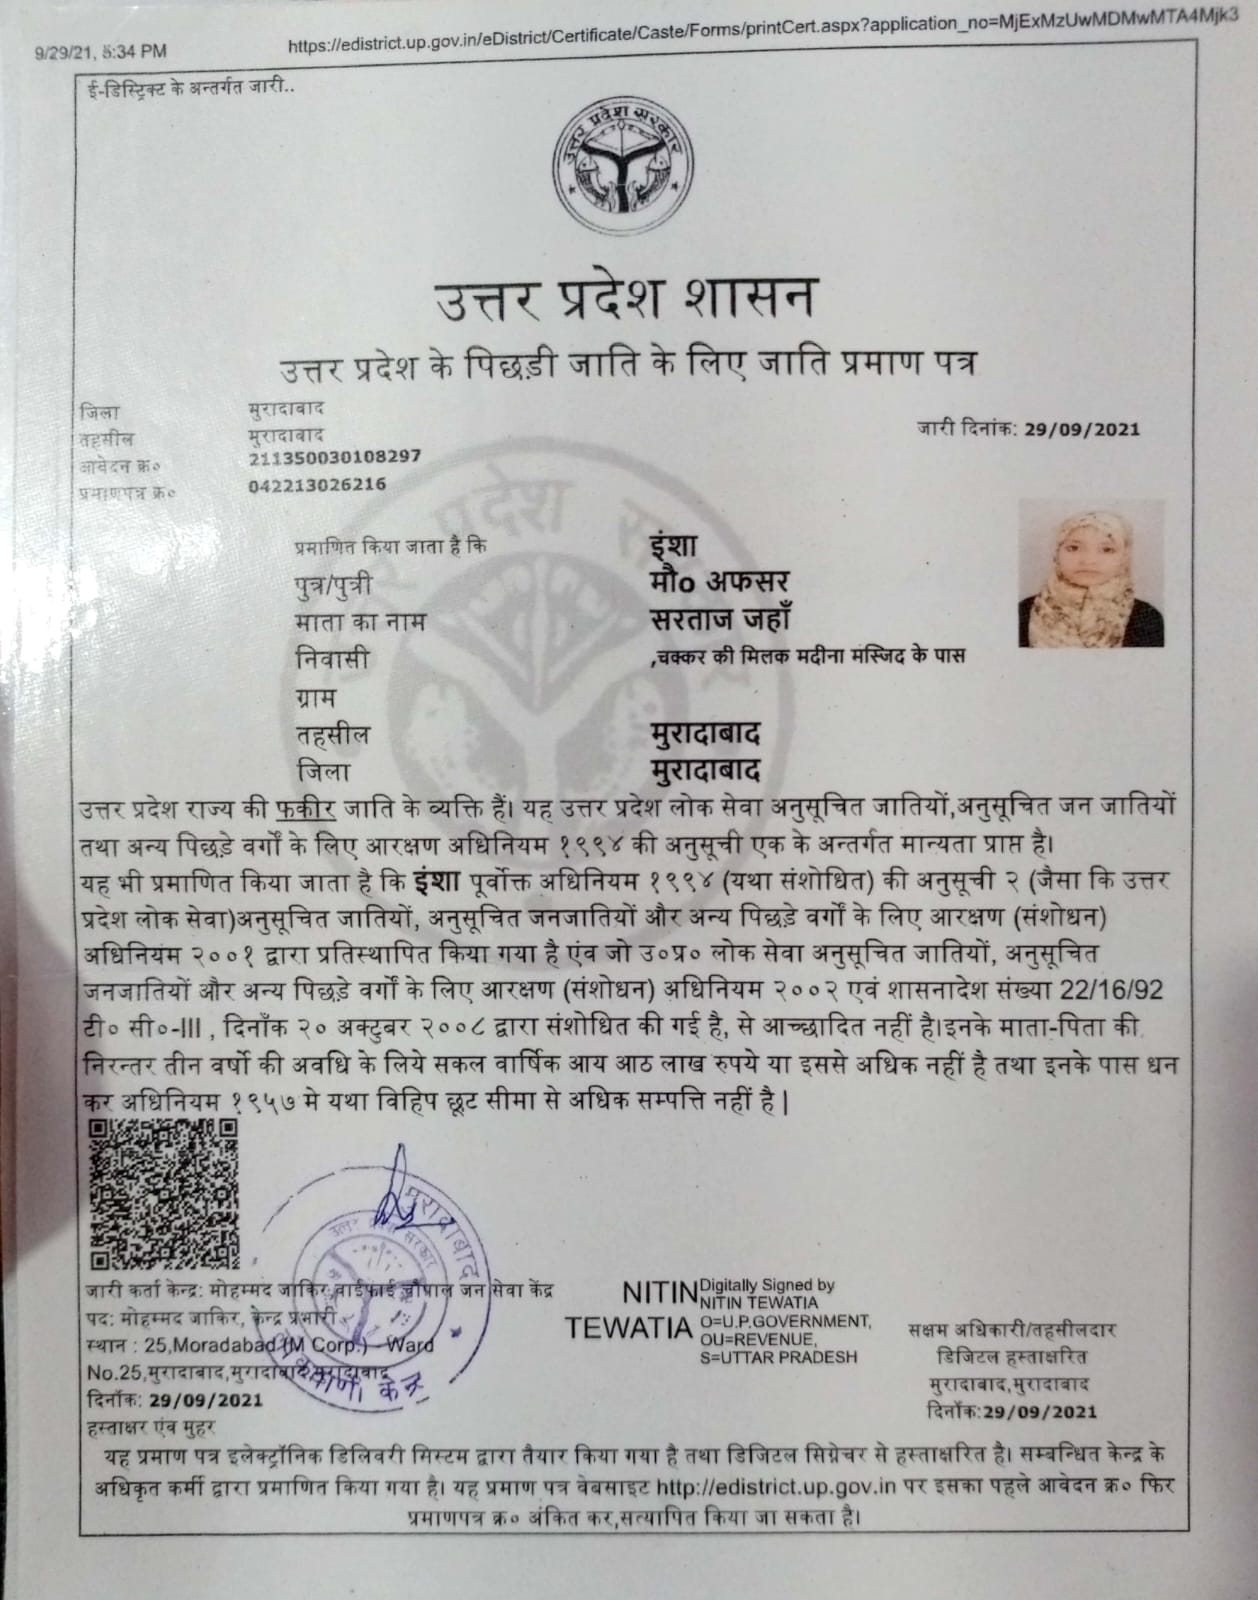 9/29/21, 5:34 PM
https://edistrict.up.gov.in/eDistrict/Certificate/Caste/Forms/printCert.aspx?application_no=MjExMzUwMDMwMTA4Mjk3
ई-डिस्ट्रिक्ट के अन्तर्गत जारी..
उत्तर प्रदेश सरकार
उत्तर प्रदेश शासन
उत्तर प्रदेश के पिछड़ी जाति के लिए जाति प्रमाण पत्र
जिला मुरादाबाद
तहसील मुरादाबाद
जारी दिनांक: 29/09/2021
आवेदन क्र० 211350030108297
प्रमाणपत्र क्र० 042213026216
प्रमाणित किया जाता है कि इंशा
पुत्र/पुत्री मौ० अफसर
माता का नाम सरताज जहाँ
निवासी ,चक्कर की मिलक मदीना मंस्जिद के पास
ग्राम
तहसील मुरादाबाद
जिला मुरादाबाद
उत्तर प्रदेश राज्य की फकीर जाति के व्यक्ति हैं। यह उत्तर प्रदेश लोक सेवा अनुसूचित जातियों,अनुसूचित जन जातियों
तथा अन्य पिछड़े वर्गों के लिए आरक्षण अधिनियम १९९४ की अनुसूची एक के अन्तर्गत मान्यता प्राप्त है।
यह भी प्रमाणित किया जाता है कि इंशा पूर्वोक्त अधिनियम १९९४ (यथा संशोधित) की अनुसूची २ (जैसा कि उत्तर
प्रदेश लोक सेवा)अनुसूचित जातियों, अनुसूचित जनजातियों और अन्य पिछड़े वर्गों के लिए आरक्षण (संशोधन)
अधिनियम २००१ द्वारा प्रतिस्थापित किया गया है एंव जो उ०प्र० लोक सेवा अनुसूचित जातियों, अनुसूचित
जनजातियों और अन्य पिछड़े वर्गों के लिए आरक्षण (संशोधन) अधिनियम २००२ एवं शासनादेश संख्या 22/16/92
टी० सी०-III , दिनाँक २० अक्टुबर २००८ द्वारा संशोधित की गई है, से आच्छादित नहीं है।इनके माता-पिता की
निरन्तर तीन वर्षो की अवधि के लिये सकल वार्षिक आय आठ लाख रुपये या इससे अधिक नहीं है तथा इनके पास धन
कर अधिनियम १९५७ मे यथा विहिप छूट सीमा से अधिक सम्पत्ति नहीं है |
मुरादाबाद
उत्तर प्रदेश सरकार
जारी कर्ता केन्द्र: मोहम्मद जाकिर वाईफाई चौपाल जन सेवा केंद्र
पद: मोहम्मद जाकिर, केन्द्र प्रभारी
स्थान : 25,Moradabad (M Corp.) - Ward
No.25,मुरादाबाद,मुरादाबाद,मुरादाबाद
दिनाँक: 29/09/2021
हस्ताक्षर एंव मुहर
NITIN
TEWATIA
Digitally Signed by
NITIN TEWATIA
O=U.P.GOVERNMENT,
OU=REVENUE,
S=UTTAR PRADESH
सक्षम अधिकारी/तहसीलदार
डिजिटल हस्ताक्षरित
मुरादाबाद,मुरादाबाद
दिनाँक:29/09/2021
यह प्रमाण पत्र इलेक्ट्रॉनिक डिलिवरी सिस्टम द्वारा तैयार किया गया है तथा डिजिटल सिग्नेचर से हस्ताक्षरित है। सम्बन्धित केन्द्र के
अधिकृत कर्मी द्वारा प्रमाणित किया गया है। यह प्रमाण पत्र वेबसाइट http://edistrict.up.gov.in पर इसका पहले आवेदन क्र० फिर
प्रमाणपत्र क्र० अंकित कर,सत्यापित किया जा सकता है।